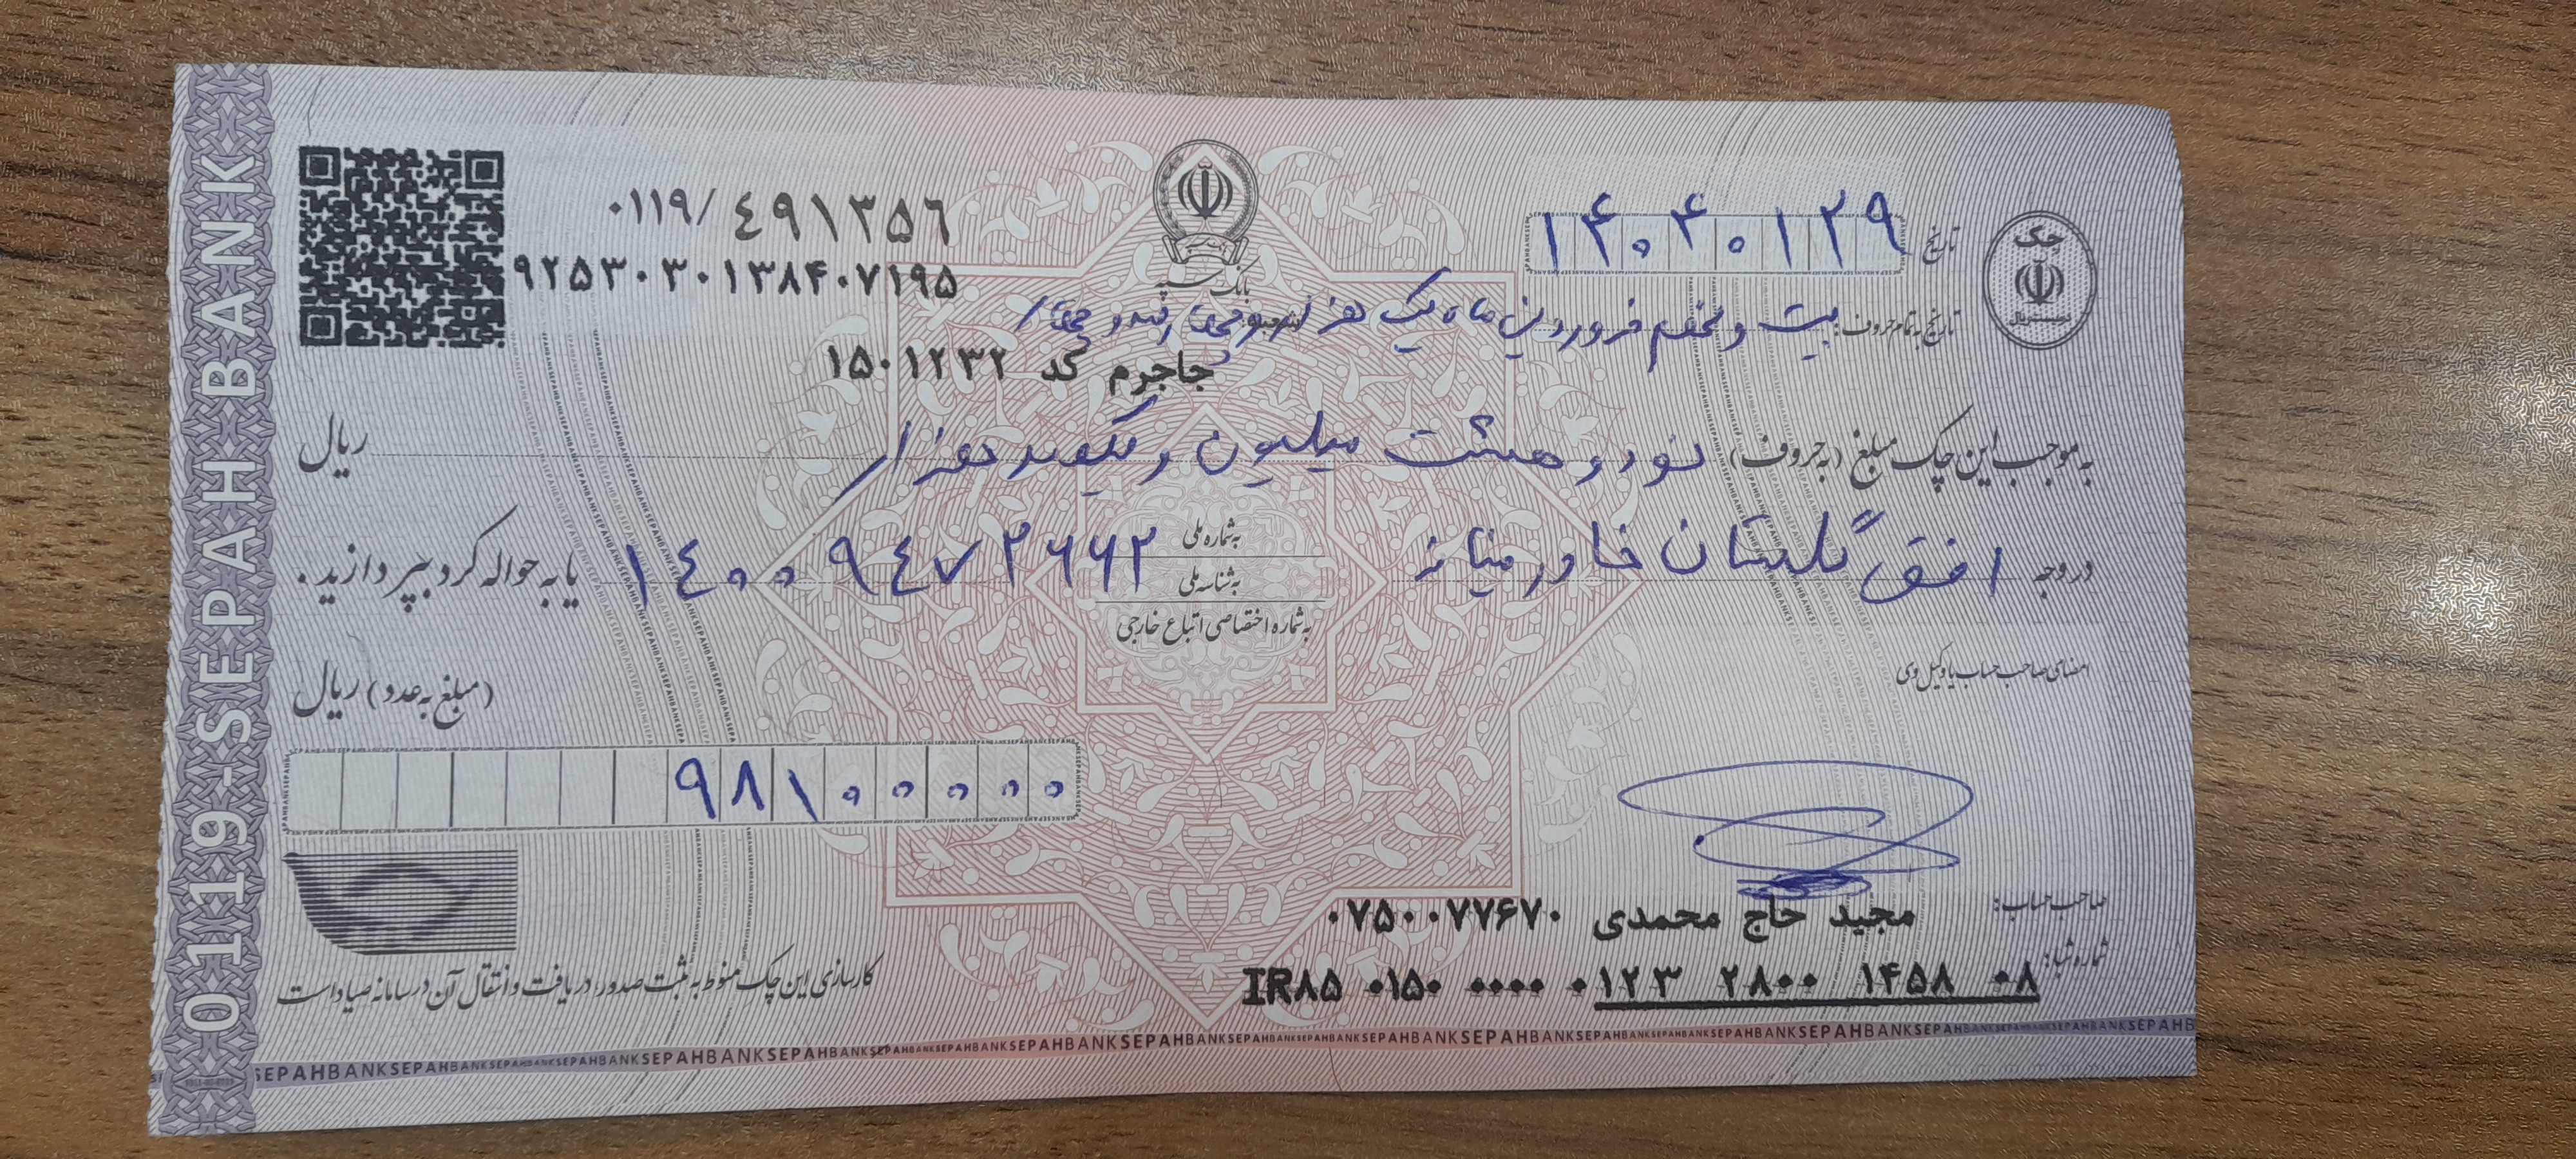 0119-SEPAH BANK
۰۱۱۹/ ۴۹۱۳۵۶
۹۲۵۳۰۳۰۱۳۸۴۰۷۱۹۵
بانک سپه
چک
تاریخ ۱۴۰۴۰۱۲۹
تاریخ به تمام حروف: بیست و نهم فروردین ماه یک هزار
جاجرم کد ۱۵۰۱۲۳۲
به موجب این چک مبلغ (به حروف) نود و هشت میلیون و یکصد هزار ریال
در وجه افق گلستان خاورمیانه به شماره ملی به شناسه ملی به شماره اختصاصی اتباع خارجی ۱۴۰۰۹۴۷۲۶۶۲ یا به حواله کرد بپردازید.
امضای صاحب حساب یا وکیل وی
(مبلغ به عدد) ریال
۹۸۱۰۰۰۰۰
صاحب حساب: مجید حاج محمدی ۰۷۵۰۰۷۷۶۷۰
شماره شبا: IR۸۵ ۰۱۵۰ ۰۰۰۰ ۰۱۲۳ ۲۸۰۰ ۱۴۵۸ ۰۸
کارسازی این چک منوط به ثبت صدور، دریافت و انتقال آن در سامانه صیاد است
SEPAHBANKSEPAHBANKSEPAHBANKSEPAHBANK